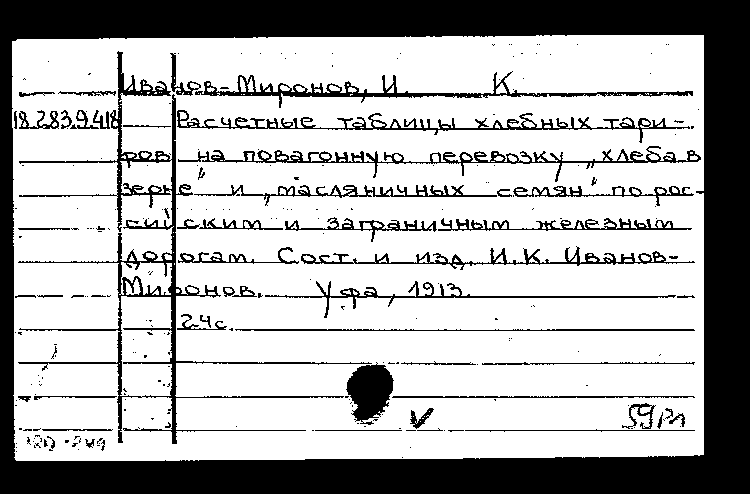 Иванов-Миронов, И. К.
18.283.9.418 Расчетные таблицы хлебных тари-
фов на повагонную перевозку „хлеба в
зерне" и „масляничных семян" по рос-
сийским и заграничным железным
дорогам. Сост. и изд. И.К. Иванов-
Миронов. Уфа, 1913.
24с.